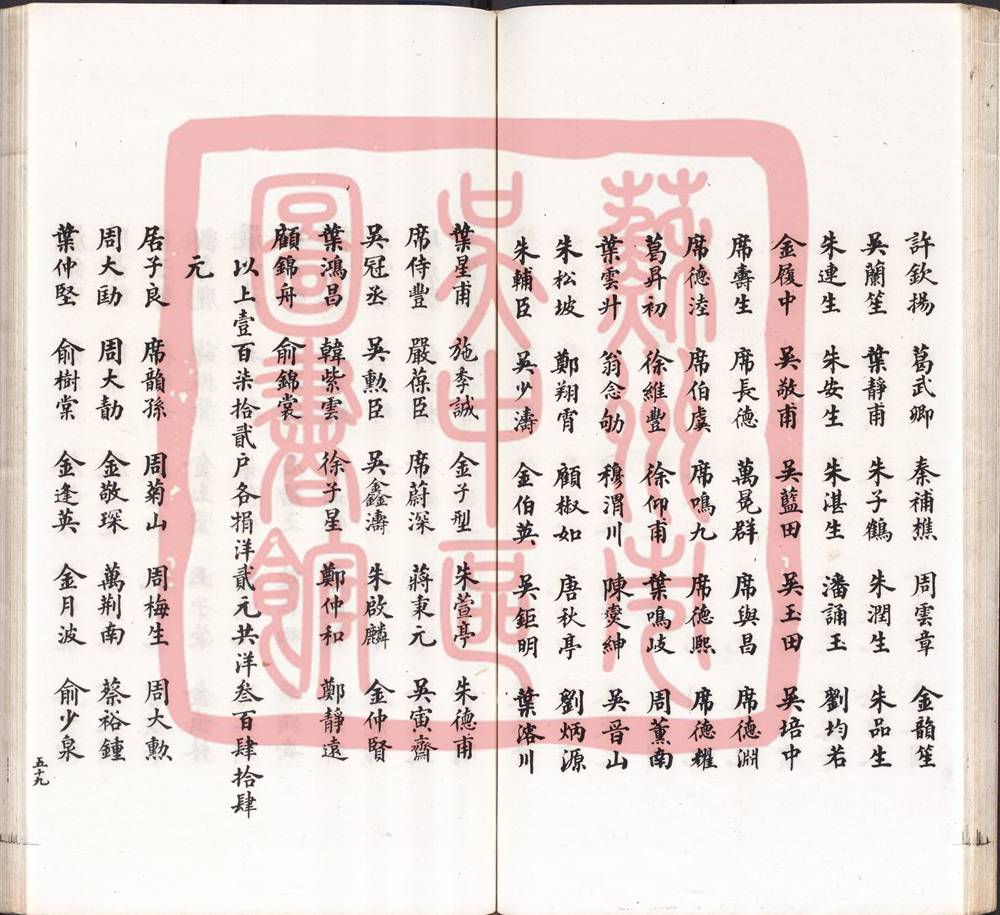 許欽揚 葛武卿 秦補樵 周雲章 金韻笙
吳蘭笙 葉靜甫 朱子鶴 朱潤生 朱品生
朱連生 朱安生 朱湛生 潘誦玉 劉均若
金履中 吳敬甫 吳藍田 吳玉田 吳培中
席壽生 席長德 萬晃群 席與昌 席德淵
席德淕 席伯虞 席鳴九 席德熈 席德耀
葛昇初 徐維豐 徐仰甫 葉鳴岐 周薰南
葉雲升 翁念劬 穆渭川 陳爕紳 吳晉山
朱松坡 鄭翔霄 顧椒如 唐秋亭 劉炳源
朱輔臣 吳少濤 金伯英 吳鉅明 葉溶川
葉星甫 施季誠 金子型 朱萱亭 朱德甫
席侍豐 嚴葆臣 席蔚深 蔣秉元 吳寅齋
吳冠丞 吳勲臣 吳鑫濤 朱啟麟 金仲賢
葉鴻昌 韓紫雲 徐子星 鄭仲和 鄭靜遠
顧錦舟 俞錦裳
以上壹百柒拾貳戶各捐洋貳元共洋叁百肆拾肆
元
居子良 席韻孫 周菊山 周梅生 周大勲
周大勛 周大勣 金敬琛 萬荆南 蔡裕鍾
葉仲堅 俞樹棠 金逢英 金月波 俞少泉
五十九
蘇州市
吳中區
圖書館